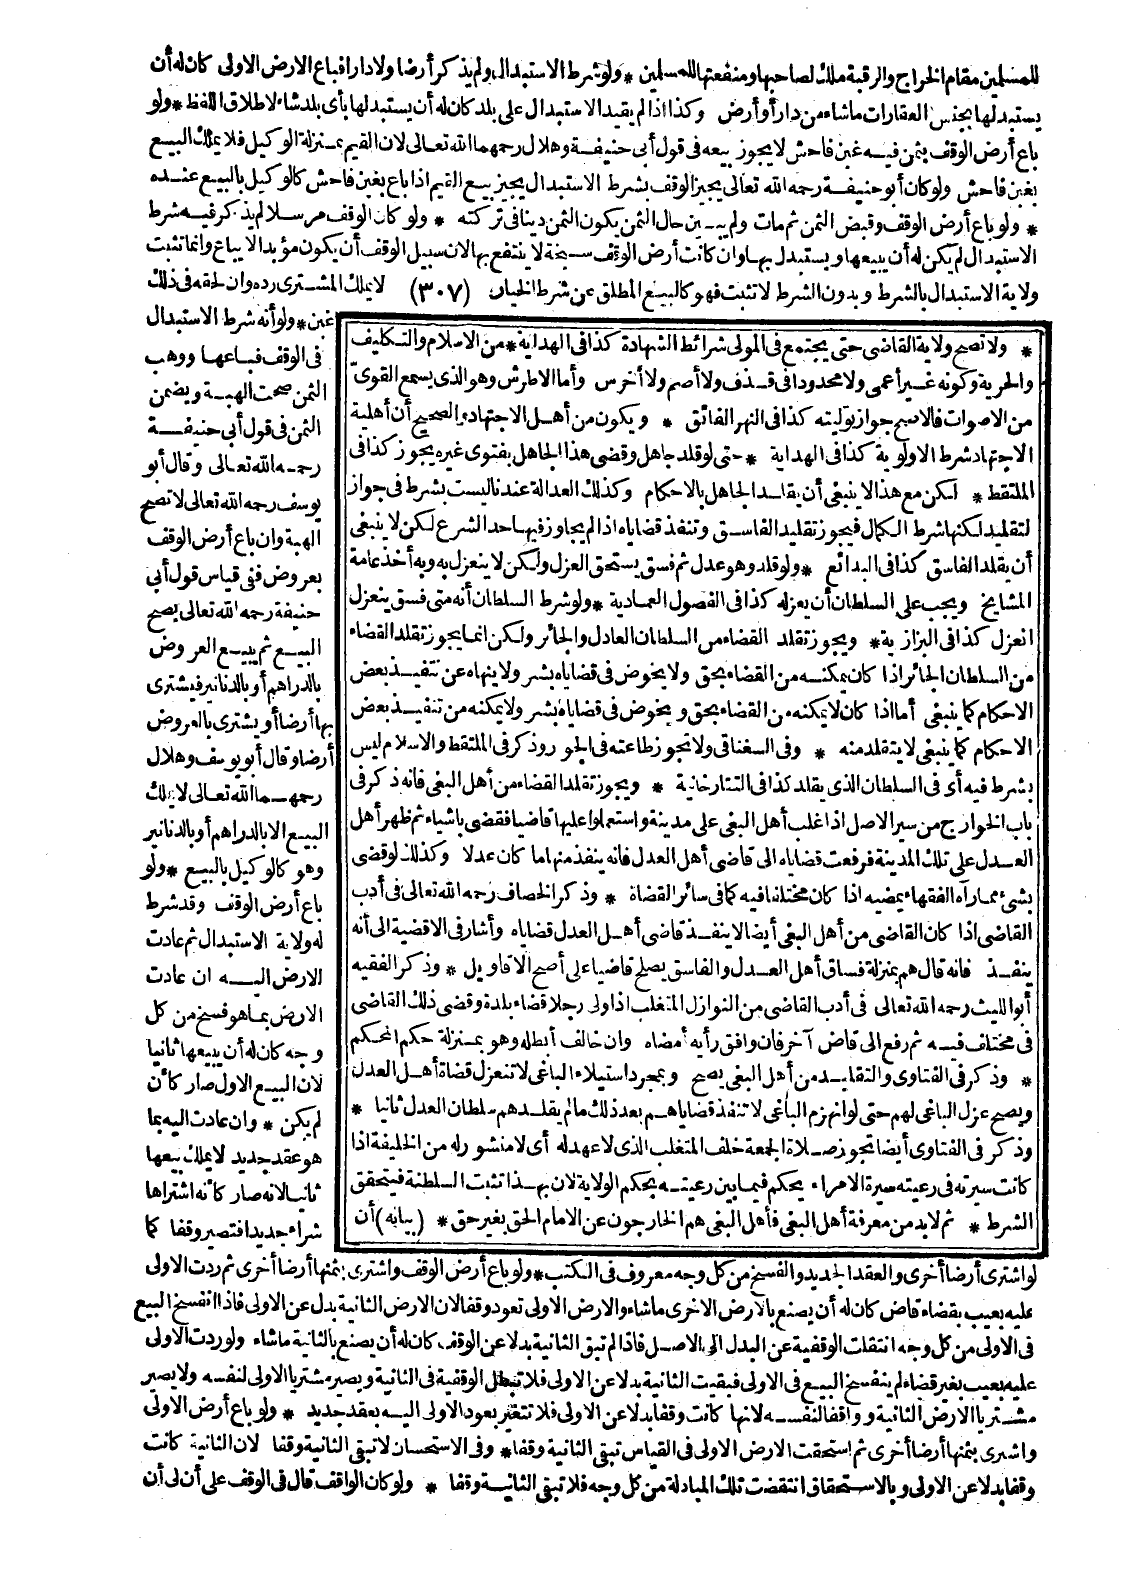 للمسلمين مقام الخراج والرقبة ملك لصاحبها ومنفعتها للمسلمين * ولو شرط الاستبدال ولم يذكر أرضا ولا دارا فباع الارض الاولى كان له أن
يستبدلها بجنس العقارات ماشاء من دار أو أرض وكذا اذا لم يقيد الاستبدال على بلد كان له أن يستبدلها بأى بلد شاء لاطلاق اللفظ * ولو
باع أرض الوقف بثمن فيه غبن فاحش لا يجوز بيعه فى قول أبى حنيفة وهلال رحمهما الله تعالى لان القيم بمنزلة الوكيل فلا يملك البيع
بغبن فاحش ولو كان أبو حنيفة رحمه الله تعالى يجيز الوقف بشرط الاستبدال يجيز بيع القيم اذا باع بغبن فاحش كالوكيل بالبيع عنده
* ولو باع أرض الوقف وقبض الثمن ثم مات ولم يبين حال الثمن يكون الثمن دينا فى تركته * ولو كان الوقف مرسلا لم يذكر فيه شرط
الاستبدال لم يكن له أن يبيعها ويستبدل بها وان كانت أرض الوقف سبخة لا ينتفع بها لان سبيل الوقف أن يكون مؤبدا لا يباع وانما تثبت
ولاية الاستبدال بالشرط وبدون الشرط لا تثبت فهو كالبيع المطلق عن شرط الخيار (٣٠٧) لا يملك المشترى رده وان لحقه فى ذلك
غبن * ولو أنه شرط الاستبدال
فى الوقف فباعها ووهب
الثمن صحت الهبة ويضمن
الثمن فى قول أبى حنيفة
رحمه الله تعالى وقال أبو
يوسف رحمه الله تعالى لا تصح
الهبة وان باع أرض الوقف
بعروض ففى قياس قول أبى
حنيفة رحمه الله تعالى يصح
البيع ثم يبيع العروض
بالدراهم أو بالدنانير فيشترى
بها أرضا أو يشترى بالعروض
أرضا وقال أبو يوسف وهلال
رحمهما الله تعالى لا يملك
البيع الا بالدراهم أو بالدنانير
وهو كالوكيل بالبيع * ولو
باع أرض الوقف وقد شرط
له ولاية الاستبدال ثم عادت
الارض اليه ان عادت
الارض بما هو فسخ من كل
وجه كان له أن يبيعها ثانيا
لان البيع الاول صار كأن
لم يكن * وان عادت اليه بما
هو عقد جديد لا يملك بيعها
ثانيا لانه صار كأنه اشتراها
شراء جديدا فتصير وقفا كما
لو اشترى أرضا أخرى والعقد الجديد والفسخ من كل وجه معروف فى الكتب * ولو باع أرض الوقف واشترى بثمنها أرضا أخرى ثم ردت الاولى
عليه بعيب بقضاء قاض كان له أن يصنع بالارض الاخرى ماشاء والارض الاولى تعود وقفا لان الارض الثانية بدل عن الاولى فاذا انفسخ البيع
فى الاولى من كل وجه انتقلت الوقفية عن البدل الى الاصل فاذا لم تبق الثانية بدلا عن الوقف كان له أن يصنع بالثانية ماشاء ولو ردت الاولى
عليه بعيب بغير قضاء لم ينفسخ البيع فى الاولى فبقيت الثانية بدلا عن الاولى فلا تبطل الوقفية فى الثانية ويصير مشتريا الاولى لنفسه ولا يصير
مشتريا الارض الثانية وواقفا لنفسه لانها كانت وقفا بدلا عن الاولى فلا تتغير بعود الاولى اليه بعقد جديد * ولو باع أرض الاولى
واشترى بثمنها أرضا أخرى ثم استحقت الارض الاولى فى القياس تبقى الثانية وقفا * وفى الاستحسان لا تبقى الثانية وقفا لان الثانية كانت
وقفا بدلا عن الاولى وبالاستحقاق انتقضت تلك المبادلة من كل وجه فلا تبقى الثانية وقفا * ولو كان الواقف قال فى الوقف على أن لى أن
* ولا تصح ولاية القاضى حتى يجتمع فى المولى شرائط الشهادة كذا فى الهداية * من الاسلام والتكليف
والحرية وكونه غير أعمى ولا محدودا فى قذف ولا أصم ولا أخرس وأما الاطرش وهو الذى يسمع القوىّ
من الاصوات فالاصح جواز توليته كذا فى النهر الفائق * ويكون من أهل الاجتهاد والصحيح أن أهلية
الاجتهاد شرط الاولوية كذا فى الهداية * حتى لو قلد جاهل وقضى هذا الجاهل بفتوى غيره يجوز كذا فى
الملتقط * لكن مع هذا لا ينبغى أن يقلد الجاهل بالاحكام وكذلك العدالة عندنا ليست بشرط فى جواز
لتقليد لكنها شرط الكمال فيجوز تقليد الفاسق وتنفذ قضاياه اذا لم يجاوز فيها حد الشرع لكن لا ينبغى
أن يقلد الفاسق كذا فى البدائع * ولو قلد وهو عدل ثم فسق يستحق العزل ولكن لا ينعزل به وبه أخذ عامة
المشايخ ويجب على السلطان أن يعزله كذا فى الفصول العمادية * ولو شرط السلطان أنه متى فسق ينعزل
انعزل كذا فى البزازية * ويجوز تقلد القضاء من السلطان العادل والجائر ولكن انما يجوز تقلد القضاء
من السلطان الجائر اذا كان يمكنه من القضاء بحق ولا يخوض فى قضاياه بشر ولا ينهاه عن تنفيذ بعض
الاحكام كما ينبغى أما اذا كان لا يمكنه من القضاء بحق ويخوض فى قضاياه بشر ولا يمكنه من تنفيذ بعض
الاحكام كما ينبغى لا يتقلد منه * وفى السغناقى ولا تجوز طاعته فى الجور وذكر فى الملتقط والاسلام ليس
بشرط فيه أى فى السلطان الذى يقلد كذا فى التتارخانية * ويجوز تقلد القضاء من أهل البغى فانه ذكر فى
باب الخوارج من سير الاصل اذا غلب أهل البغى على مدينة واستعملوا عليها قاضيا فقضى باشياء ثم ظهر أهل
العدل على تلك المدينة فرفعت قضاياه الى قاضى أهل العدل فانه ينفذ منها ما كان عدلا وكذلك لو قضى
بشئ مما رآه الفقهاء يمضيه اذا كان مختلفا فيه كما فى سائر القضاة * وذكر الخصاف رحمه الله تعالى فى أدب
القاضى اذا كان القاضى من أهل البغى أيضا لا ينفذ قاضى أهل العدل قضاياه وأشار فى الاقضية الى أنه
ينفذ فانه قال هم بمنزلة فساق أهل العدل والفاسق يصلح قاضيا على أصح الاقاويل * وذكر الفقيه
أبو الليث رحمه الله تعالى فى أدب القاضى من النوازل المتغلب اذا ولى رجلا قضاء بلدة وقضى ذلك القاضى
فى مختلف فيه ثم رفع الى قاض آخر فان وافق رأيه أمضاه وان خالف أبطله وهو بمنزلة حكم المحكم
* وذكر فى الفتاوى والتقليد من أهل البغى يصح وبمجرد استيلاء الباغى لا تنعزل قضاة أهل العدل
ويصح عزل الباغى لهم حتى لو انهزم الباغى لا تنفذ قضاياهم بعد ذلك مالم يقلدهم سلطان العدل ثانيا *
وذكر فى الفتاوى أيضا تجوز صلاة الجمعة خلف المتغلب الذى لا عهد له أى لا منشور له من الخليفة اذا
كانت سيرته فى رعيته سيرة الامراء يحكم فيما بين رعيته بحكم الولاية لان بهذا تثبت السلطنة فيتحقق
الشرط * ثم لا بد من معرفة أهل البغى فأهل البغى هم الخارجون عن الامام الحق بغير حق * (بيانه) أن